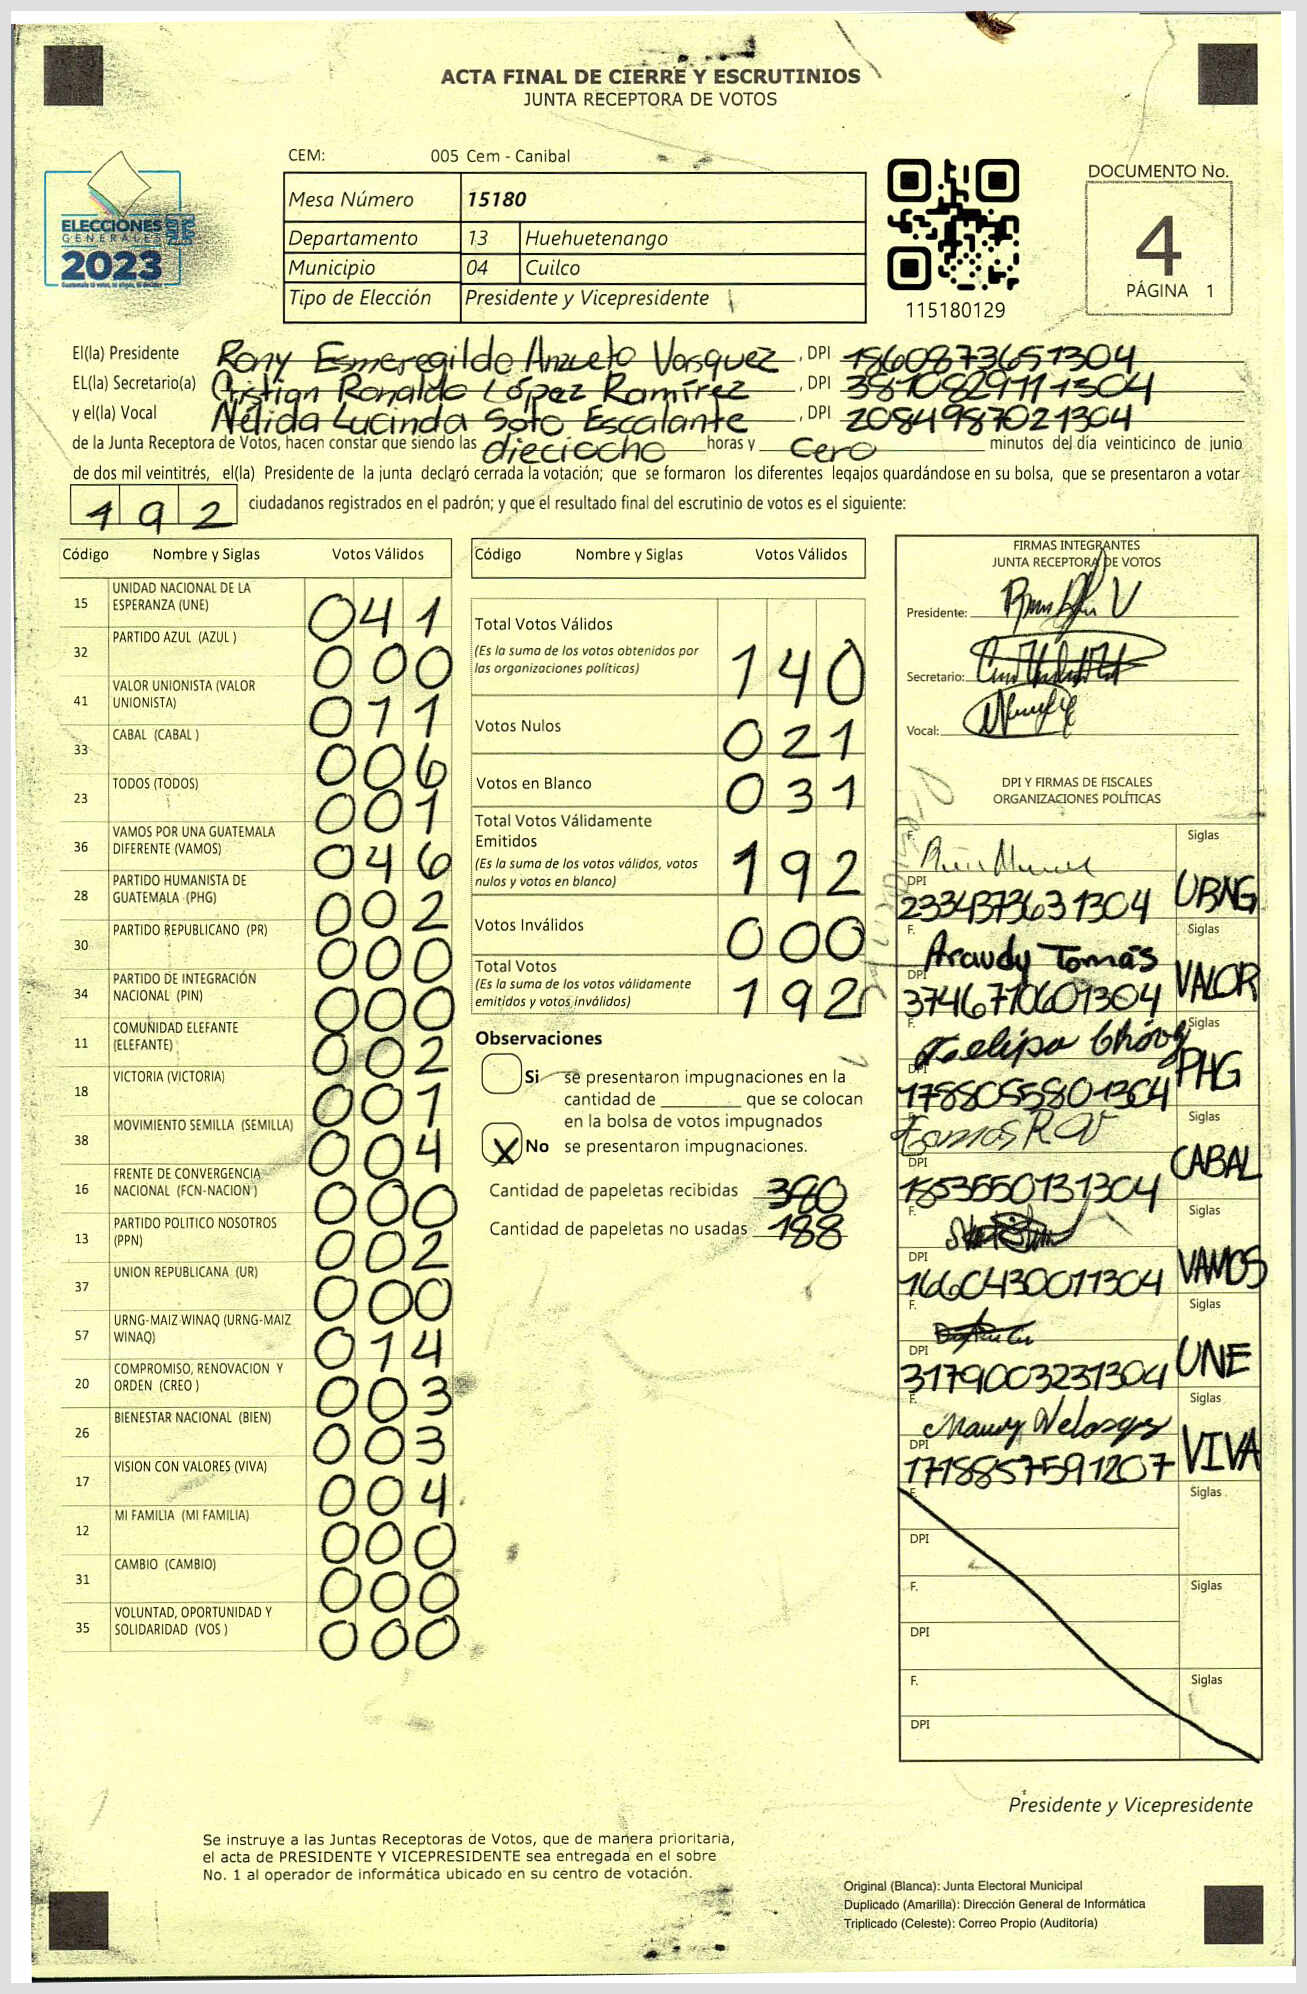 ACTA FINAL DE CIERRE Y ESCRUTINIOS
JUNTA RECEPTORA DE VOTOS
CEM: 005 Cem - Canibal
Mesa Número 15180
Departamento 13 Huehuetenango
Municipio 04 Cuilco
Tipo de Elección Presidente y Vicepresidente
ELECCIONES
GENERALES
2023
115180129
DOCUMENTO No.
4
PÁGINA 1
El(la) Presidente Rony Esmeregildo Anzueto Vasquez, DPI 1860873651304
EL(la) Secretario(a) Cristian Ronaldo López Ramírez, DPI 3810829111304
y el(la) Vocal Nélida Lucinda Soto Escalante, DPI 2084987021304
de la Junta Receptora de Votos, hacen constar que siendo las dieciocho horas y cero minutos del día veinticinco de junio
de dos mil veintitrés, el(la) Presidente de la junta declaró cerrada la votación; que se formaron los diferentes legajos guardándose en su bolsa, que se presentaron a votar
192 ciudadanos registrados en el padrón; y que el resultado final del escrutinio de votos es el siguiente:
Código Nombre y Siglas Votos Válidos
15 UNIDAD NACIONAL DE LA ESPERANZA (UNE) 041
32 PARTIDO AZUL (AZUL ) 000
41 VALOR UNIONISTA (VALOR UNIONISTA) 011
33 CABAL (CABAL ) 006
23 TODOS (TODOS) 001
36 VAMOS POR UNA GUATEMALA DIFERENTE (VAMOS) 046
28 PARTIDO HUMANISTA DE GUATEMALA (PHG) 002
30 PARTIDO REPUBLICANO (PR) 000
34 PARTIDO DE INTEGRACIÓN NACIONAL (PIN) 000
11 COMUNIDAD ELEFANTE (ELEFANTE) 002
18 VICTORIA (VICTORIA) 001
38 MOVIMIENTO SEMILLA (SEMILLA) 004
16 FRENTE DE CONVERGENCIA NACIONAL (FCN-NACION ) 000
13 PARTIDO POLITICO NOSOTROS (PPN) 002
37 UNION REPUBLICANA (UR) 000
57 URNG-MAIZ WINAQ (URNG-MAIZ WINAQ) 014
20 COMPROMISO, RENOVACION Y ORDEN (CREO ) 003
26 BIENESTAR NACIONAL (BIEN) 003
17 VISION CON VALORES (VIVA) 004
12 MI FAMILIA (MI FAMILIA) 000
31 CAMBIO (CAMBIO) 000
35 VOLUNTAD, OPORTUNIDAD Y SOLIDARIDAD (VOS ) 000
Código Nombre y Siglas Votos Válidos
Total Votos Válidos
(Es la suma de los votos obtenidos por
las organizaciones políticas) 140
Votos Nulos 021
Votos en Blanco 031
Total Votos Válidamente
Emitidos
(Es la suma de los votos válidos, votos
nulos y votos en blanco) 192
Votos Inválidos 000
Total Votos
(Es la suma de los votos válidamente
emitidos y votos inválidos) 192
Observaciones
Si se presentaron impugnaciones en la
cantidad de ________ que se colocan
en la bolsa de votos impugnados
X No se presentaron impugnaciones.
Cantidad de papeletas recibidas 380
Cantidad de papeletas no usadas 188
FIRMAS INTEGRANTES
JUNTA RECEPTORA DE VOTOS
Presidente:
Secretario:
Vocal:
DPI Y FIRMAS DE FISCALES
ORGANIZACIONES POLÍTICAS
F. Siglas
DPI 2334373631304 URNG
F. Araudy Tomás Siglas
DPI 3746710601304 VALOR
F. Siglas
DPI 1788055801304 PHG
Siglas
DPI 1853550131304 CABAL
F. Siglas
DPI 1660430011304 VAMOS
F. Siglas
DPI 3179003231304 UNE
F. Siglas
DPI 1718857591207 VIVA
F. Siglas
DPI
F. Siglas
DPI
F. Siglas
DPI
Presidente y Vicepresidente
Se instruye a las Juntas Receptoras de Votos, que de manera prioritaria,
el acta de PRESIDENTE Y VICEPRESIDENTE sea entregada en el sobre
No. 1 al operador de informática ubicado en su centro de votación.
Original (Blanca): Junta Electoral Municipal
Duplicado (Amarilla): Dirección General de Informática
Triplicado (Celeste): Correo Propio (Auditoría)